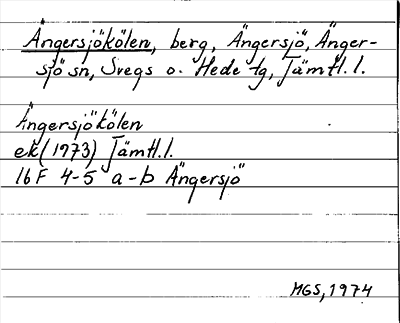 Ängersjökölen, berg, Ängersjö, Änger-
sjö sn, Svegs o. Hede tg, Jämtl. l.
Ängersjökölen
ek (1973) Jämtl. l.
16 F 4-5 a-b Ängersjö
MGS, 1974